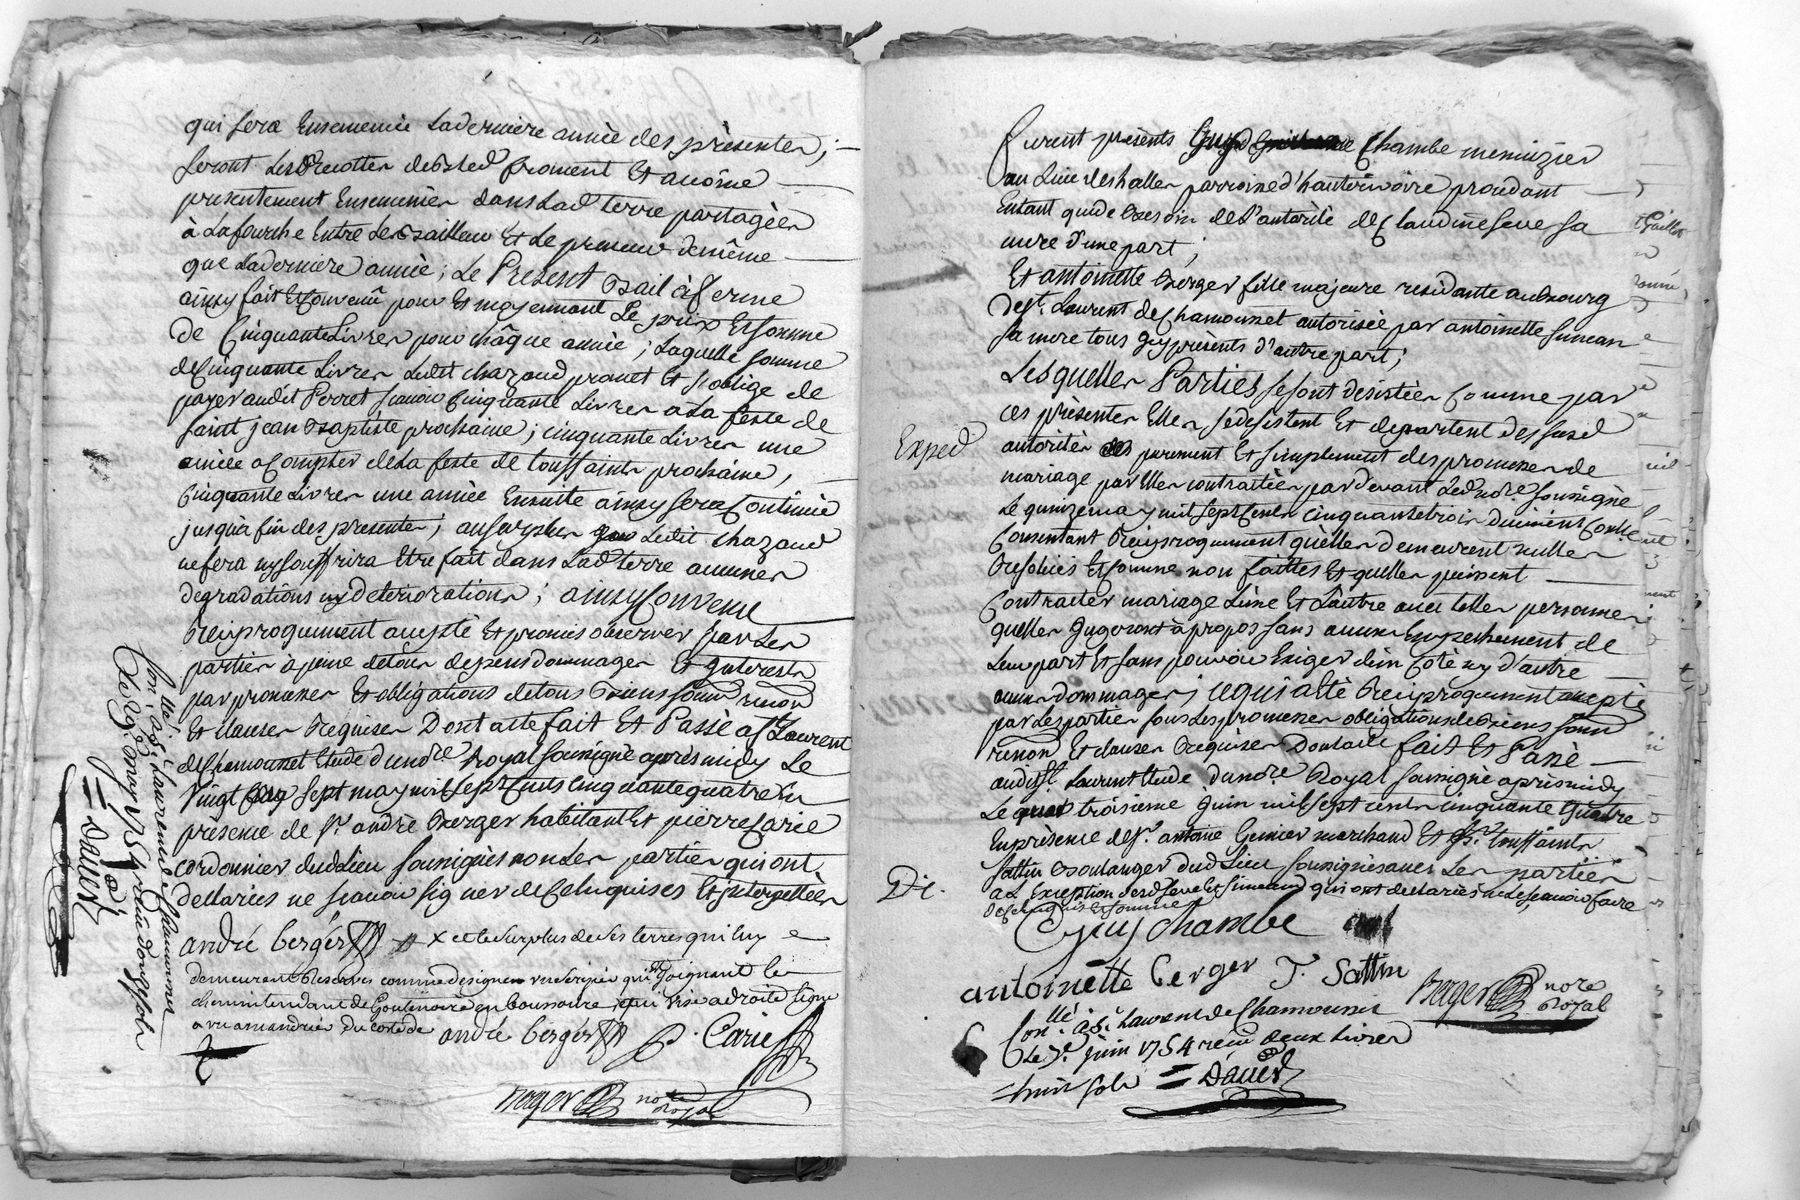 qui sera Ensemencée Laderniere année des présentes;
seront Lesd Recottes debled froment Et avoine
presentement Ensemencées dans Lad terre partagées
à Lafourche Entre Le Bailleur Et Le preneur demême
que Laderniere année; Le Présent Bail à ferme
ainsy fait Et Convenû pour Et moyennant Le prix Et somme
de Cinquante Livres pour châque année; Laquelle somme
de Cinquante Livres Ledit chazaud promet Et s'oblige de
payer audit Perret scavoir Cinquante Livres à La feste de
saint jean Baptiste prochaine; cinquante Livres une
année a Compter de La feste de toussaints prochaine,
Cinquante Livres une année Ensuite ainsy sera Continué
jusqu'à fin des presentes; au surplus Ledit chazaud
ne fera ny souffrira Etre fait dans Lad terre aucunes
degradations ny deteriorations; ainsy Convenu
Reciproquement accepté Et promis observer par Les
parties à peine de tous depens dommages Et Interests
par promesses Et obligations de tous Biens soum renon
Et clauses Requises Dont acte fait Et Passé a St Laurent
de Chamousset Etude du nore Royal soussigné après midy Le
Vingt sept may mil sept Cents cinquante quatre En
presence de sr. andré Berger habitant Et pierre Carie
cordonnier dud Lieu soussignés non Les parties qui ont
declarées ne scavoir signer de Ce Enquises Et Interpellées
andré berger x et le surplus de ses terres qui luy
demeurent Reservés comme designes
chemin tendant de
a vu amandrier du coté de andré berger P. Carie
Bager nore Royal
Conllé à St. Laurent de Chamousset
Le 29e. may 1754 reçu douze sols
= Dauer
furent présents Guy Chambe menuizier
au Lieu des halles parroisse d'hauterivoire procédant
Entant que de Besoin de L'autorité de Claudine seve sa
mere d'une part;
Et antoinette Berger fille majeure residante au Bourg
de st. Laurent de Chamousset autorisée par antoinette simean
sa mere tous icy presents d'autre part;
Lesquelles Parties se sont desistées Comme par
ces présentes Elles se desistent Et departent des susd
Exped
autorités purement Et simplement des promesses de
mariage par Elles contractées par devant Led nore soussigné
Le quinze may mil sept Cents cinquante trois duëment Contr
Consentant Reciproquement qu'elles demeurent nulles
Resoluës Et Comme non faittes Et quelles puissent
Contracter mariage L'une Et L'autre avec telles personnes
quelles Jugeront à propos sans aucun Empechement de
Leur part Et sans pouvoir Exiger d'un Coté ny d'autre
aucuns dommages; ce qui a Eté Reciproquement accepté
par Les parties sous Les promesses obligations de Biens soum
renon Et clauses Requises Dont acte fait Et Passé
audit st. Laurent Etude du nore Royal soussigné après midy
Le troisieme Juin mil sept cents cinquante quatre
En présence de sr. antoine Grenier marchand Et sr. toussaints
sattin Boulanger dud Lieu soussignés avec Les parties
Dt.
a L'Exception desd seve Et simeand qui ont declarées ne le scavoir faire
de ce Enquis Et sommé
Guy chambe
antoinette berger T. Sattin
Bager nore Royal
Conllé à St. Laurent de Chamousset
Le 7e. juin 1754 reçu deux Livres
huit sols = Dauer